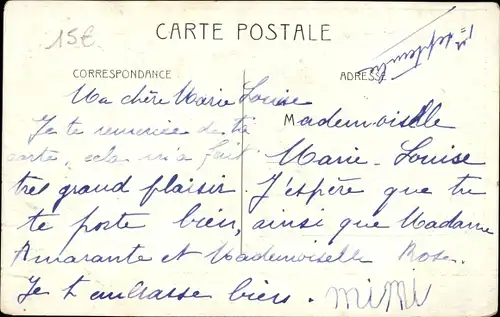 15€
CARTE POSTALE
1er septembre
CORRESPONDANCE
ADRESSE
Ma chère Marie Louise
Mademoiselle
Je te remercie de ta
Marie-Louise
carte, cela m'a fait
très grand plaisir. J'espère que tu
te porte bien, ainsi que Madame
Amarante et Mademoiselle Rose.
Je t'embrasse bien. mimi